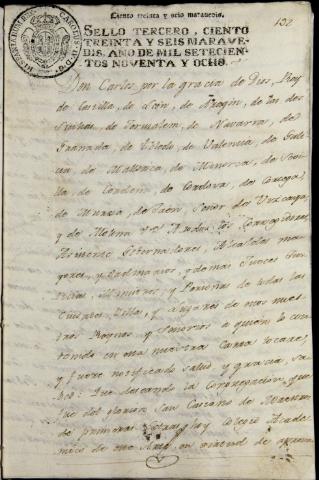 Ciento treinta y ocho maravedis.
132
SELLO TERCERO, CIENTO
TREINTA Y SEIS MARAVE-
DIS, AÑO DE MIL SETECIEN-
TOS NOVENTA Y OCHO.
Don Carlos por la gracia de Dios, Rey
de Castilla, de Leon, de Aragon, de las dos
Sicilias, de Jerusalem, de Navarra, de
Granada, de Toledo, de Valencia, de Gali-
cia, de Mallorca, de Menorca, de Sevi-
lla, de Cerdeña, de Cordova, de Corcega,
de Murcia, de Jaen, Señor de Vizcaya,
y de Molina &c. A todos los Corregidores,
Asistente, Governadores, Alcaldes ma-
yores, y ordinarios, y demas Jueces Jus-
ticias, Ministros, y Personas de todas las
Ciudades, Villas, y Lugares de nos nues-
tros Reynos, y Señorios a quien lo con-
tenido en esta nuestra Carta tocare,
y fuere notificado salud y gracia, sa-
bed: Que deseando la Congregacion, que
fue del glorioso San Casiano de Maestros
de primeras letras, hoy Colegio Acade-
mico de este Arte, en virtud de